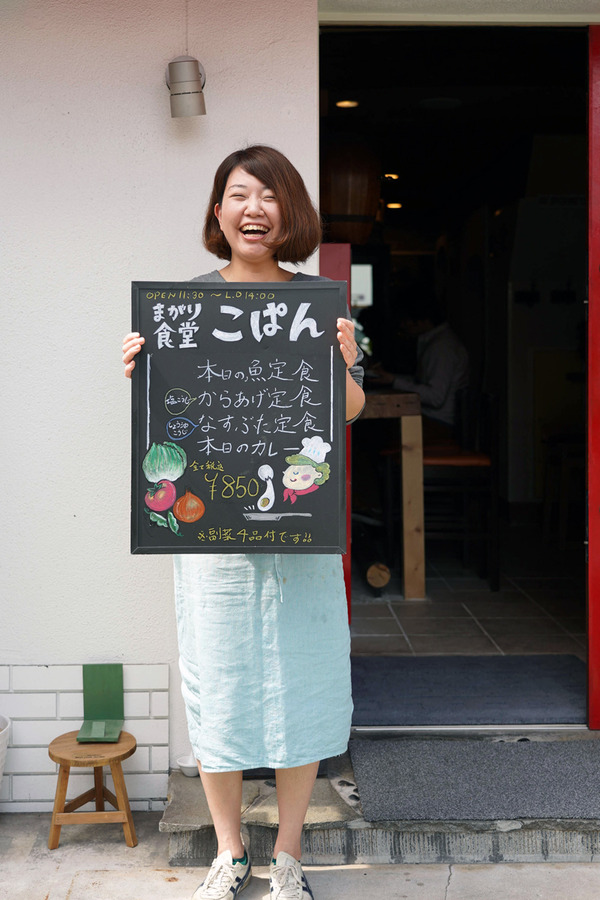 OPEN 11:30 ～ L.O 14:00
まがり食堂 こぱん
本日の魚定食
塩こうじ からあげ定食
しょうゆこうじ なすぶた定食
本日のカレー
全て税込
¥850
※副菜4品付です!!